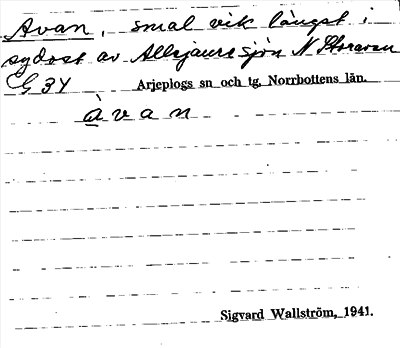 Avan, smal vik längst i
sydost av Allejaure sjön N Storavan
G 34 Arjeplogs sn och tg, Norrbottens län.
àvan
Sigvard Wallström, 1941.